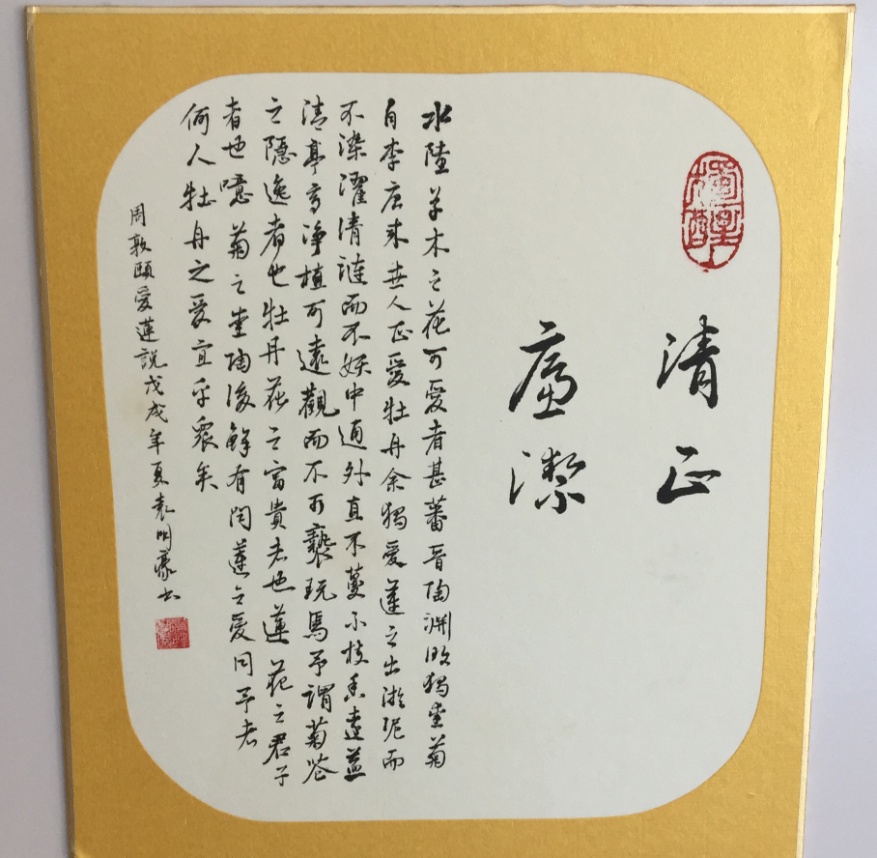 清正
廉潔
水陸草木之花可愛者甚蕃晋陶淵明獨愛菊
自李唐来世人正愛牡丹余獨愛蓮之出淤泥而
不染濯清漣而不妖中通外直不蔓不枝香遠益
清亭亭净植可遠觀而不可褻玩焉予謂菊花
之隱逸者也牡丹花之富貴者也蓮花之君子
者也噫菊之愛陶後鮮有闻蓮之愛同予者
何人牡丹之愛宜乎衆矣
周敦頤愛蓮說戊戌年夏袁明豪书